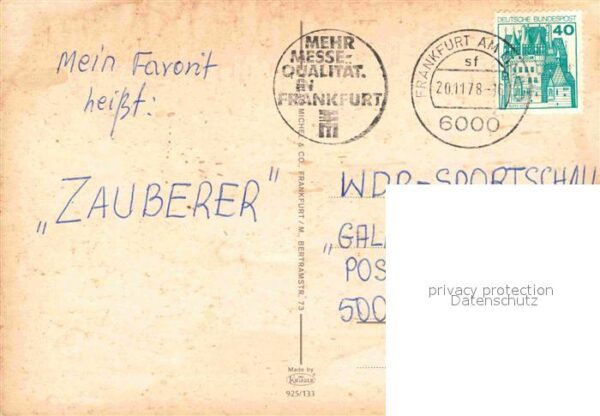 Mein Favorit
heißt:
„ZAUBERER"
MEHR
MESSE-
QUALITÄT.
IN
FRANKFURT
FRANKFURT AM
sf
20.11.78
6000
DEUTSCHE BUNDESPOST
40
MICHEL & CO., FRANKFURT/M., BERTRAMSTR. 73
WDR-SPORTSCHAU
„GAL
POS
500
privacy protection
Datenschutz
Made by
Krüger
925/133